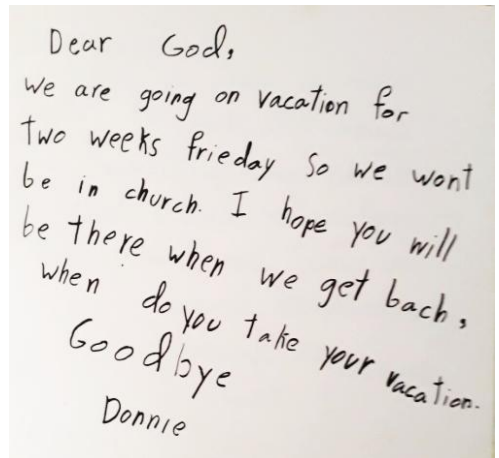 Dear God,
We are going on vacation for
two weeks frieday so we wont
be in church. I hope you will
be there when we get bach,
when do you take your vacation.
Goodbye
Donnie